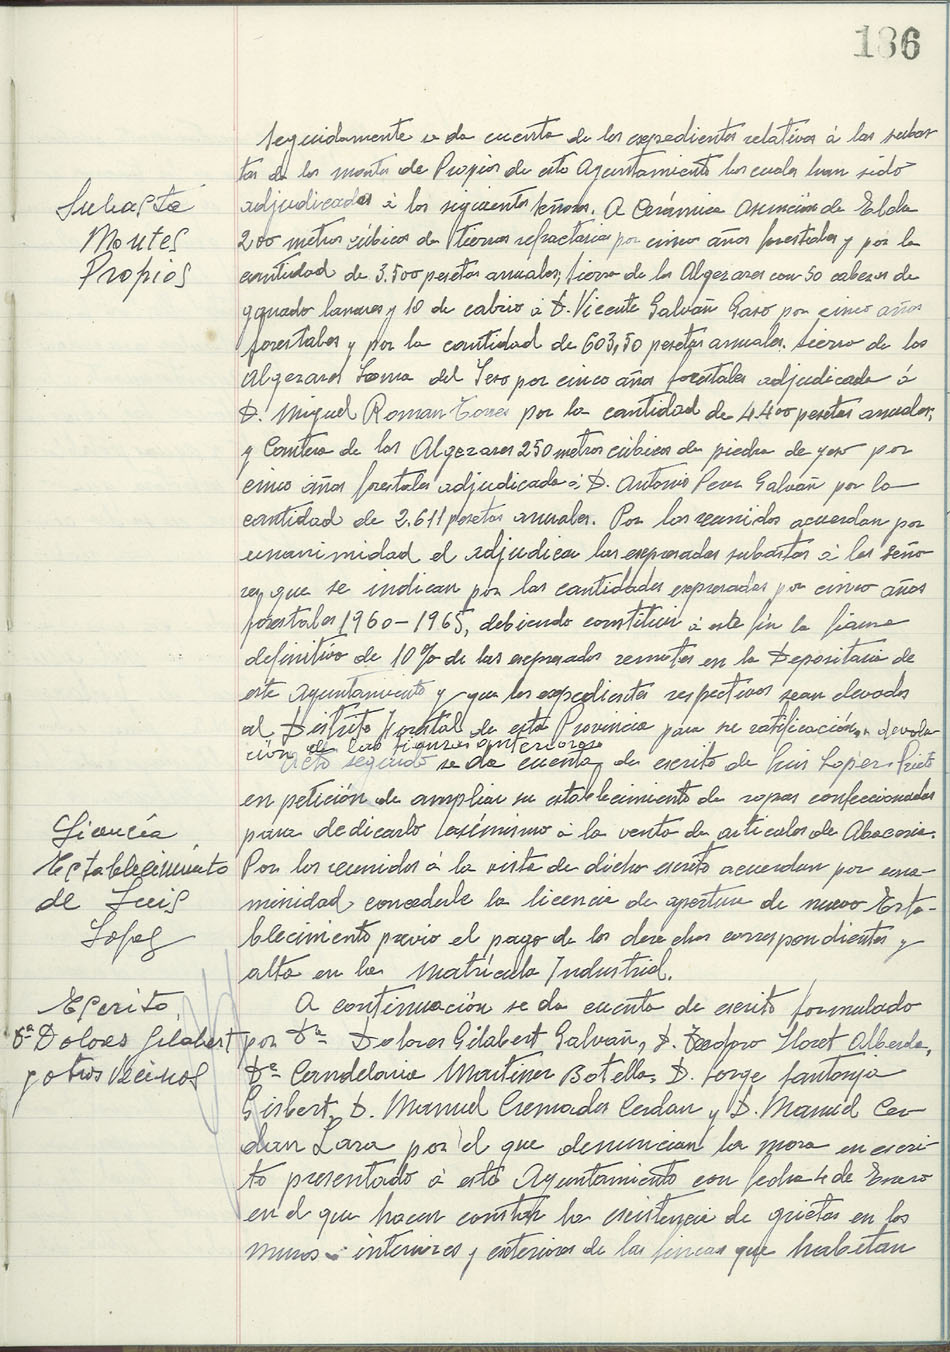 186
Seguidamente se da cuenta de los expedientes relativos á las subas-
tas de los montes de Propios de este Ayuntamiento los cuales han sido
Subasta
adjudicados á los siguientes señores. A Cerámica Asunción de Elda
Montes
200 metros cúbicos de tierras refractaria por cinco años forestales y por la
Propios
cantidad de 3.500 pesetas anuales; sierra de los Algezares con 50 cabezas de
ganado lanares y 10 de cabrio á D. Vicente Galvañ Gaso por cinco años
forestales y por la cantidad de 603,50 pesetas anuales. Sierra de los
Algezares Loma del Yeso por cinco años forestales adjudicada á
D. Miguel Roman Torres por la cantidad de 4.400 pesetas anuales,
y Cantera de los Algezares 250 metros cúbicos de piedra de yeso por
cinco años forestales adjudicada á D. Antonio Perez Galvañ por la
cantidad de 2.611 pesetas anuales. Por los reunidos acuerdan por
unanimidad el adjudicar las expresadas subastas á los seño-
res que se indican por las cantidades expresadas por cinco años
forestales 1960-1965, debiendo constituir á este fin la fianza
definitivo de 10% de las expresados remates en la Depositaria de
este Ayuntamiento y que los expedientes respectivos sean elevados
al Distrito Forestal de esta Provincia para su ratificación, devolu-
ción de las fianzas anteriores
Acto seguido se da cuenta de escrito de Luis Lopez Prieto
en petición de ampliar su establecimiento de ropas confeccionadas
Licencia
para dedicarlo asimismo á la venta de articulos de Abaceria.
Establecimiento
Por los reunidos á la vista de dicho escrito acuerdan por una-
de Luis
nimidad concederle la licencia de apertura de nuevo Esta-
Lopez
blecimiento previo el pago de los derechos correspondientes y
alta en la Matrícula Industrial.
Escrito
A continuación se da cuenta de escrito formulado
Dª Dolores Gilabert
por Dª Dolores Gilabert Galvañ, D. Teodoro Lloret Alberola,
y otros vecinos
Dª Candelaria Martinez Botella, D. Jorge Santonja
Gisbert, D. Manuel Cremades Cerdan y D. Manuel Cer-
dan Lara por el que denuncian la mora en escri-
to presentado á este Ayuntamiento con fecha 4 de Enero
en el que hacen constar la existencia de grietas en los
muros interiores y exteriores de las fincas que habitan